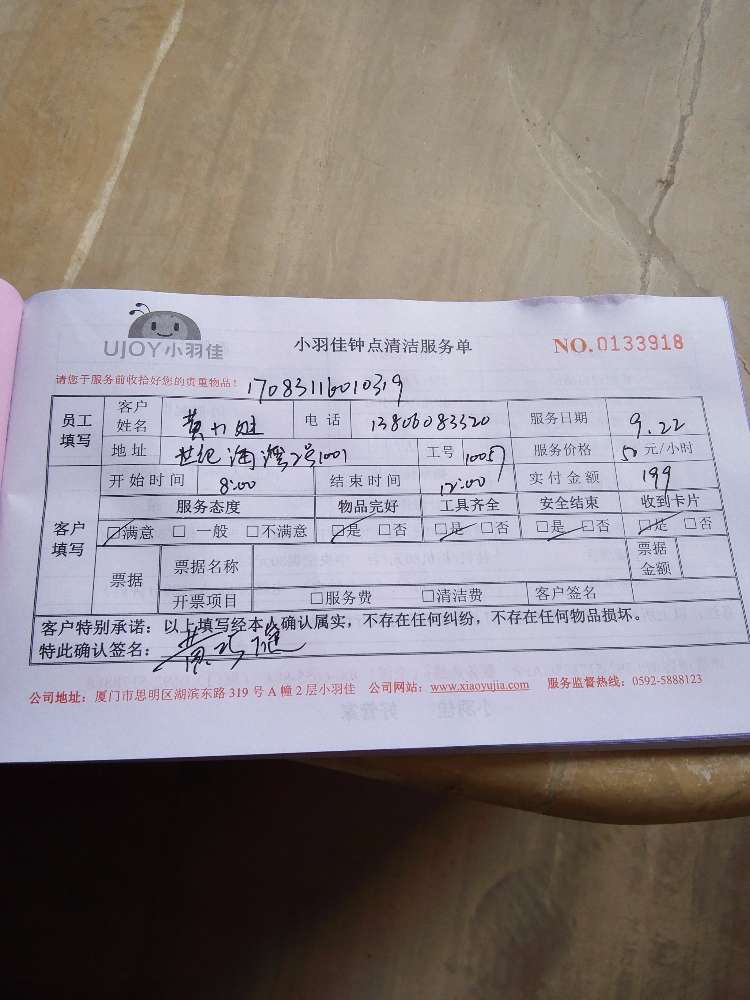 UJOY小羽佳
小羽佳钟点清洁服务单
NO.0133918
请您于服务前收拾好您的贵重物品! 17083116010319
员工填写 客户姓名 黄 电话 13806083320 服务日期 9.22
地址 世纪海湾2号1001 工号 10057 服务价格 50元/小时
客户填写 开始时间 8:00 结束时间 12:00 实付金额 199
服务态度 物品完好 工具齐全 安全结束 收到卡片
□满意 □一般 □不满意 □是 □否 □是 □否 □是 □否 □是 □否
票据 票据名称 票据金额
开票项目 □服务费 □清洁费 客户签名
客户特别承诺：以上填写经本人确认属实，不存在任何纠纷，不存在任何物品损坏。
特此确认签名：黄
公司地址：厦门市思明区湖滨东路 319 号 A 幢 2 层小羽佳 公司网站：www.xiaoyujia.com 服务监督热线：0592-5888123